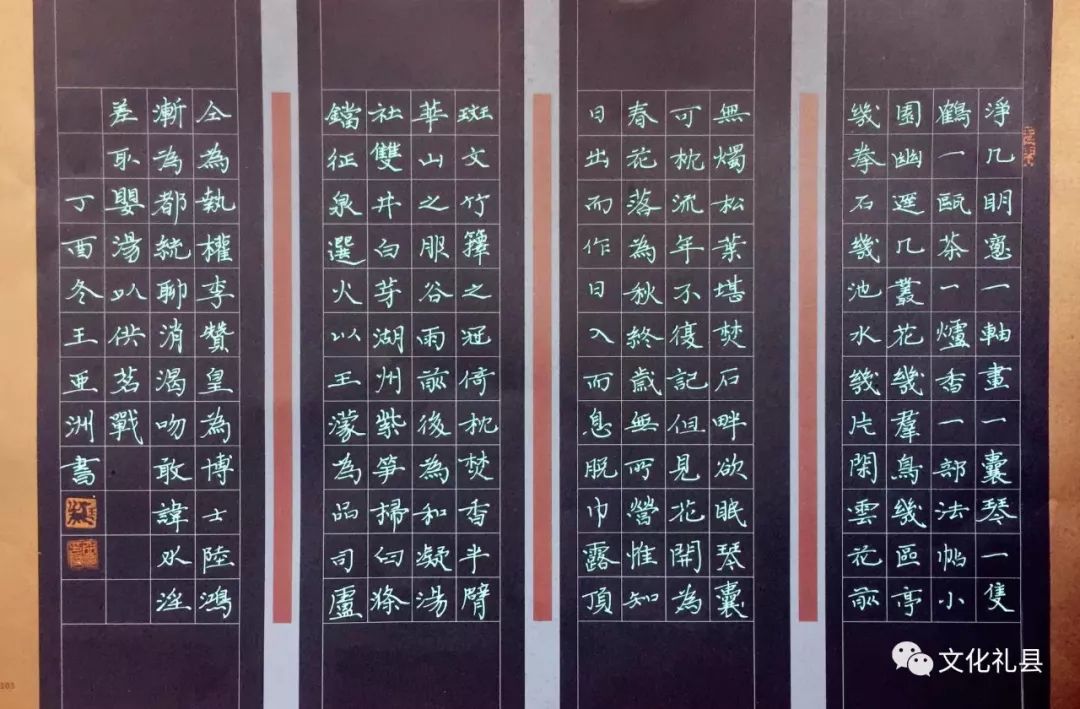 淨几明窻一軸畫一囊琴一隻
鶴一甌茶一爐香一部法帖小
園幽逕几叢花幾羣鳥幾區亭
幾拳石幾池水幾片閑雲花前
無燭松葉堪焚石畔欲眠琴囊
可枕流年不復記但見花開為
春花落為秋終歲無所營惟知
日出而作日入而息脫巾露頂
斑文竹籜之冠倚枕焚香半臂
華山之服谷雨前後為和凝湯
社雙井白芽湖州紫笋掃臼滌
鐺征泉選火以王濛為品司盧
仝為執權李贊皇為博士陸鴻
漸為都統聊消渴吻敢諱水淫
差取嬰湯以供茗戰
丁酉冬王亞洲書
文化礼县
103